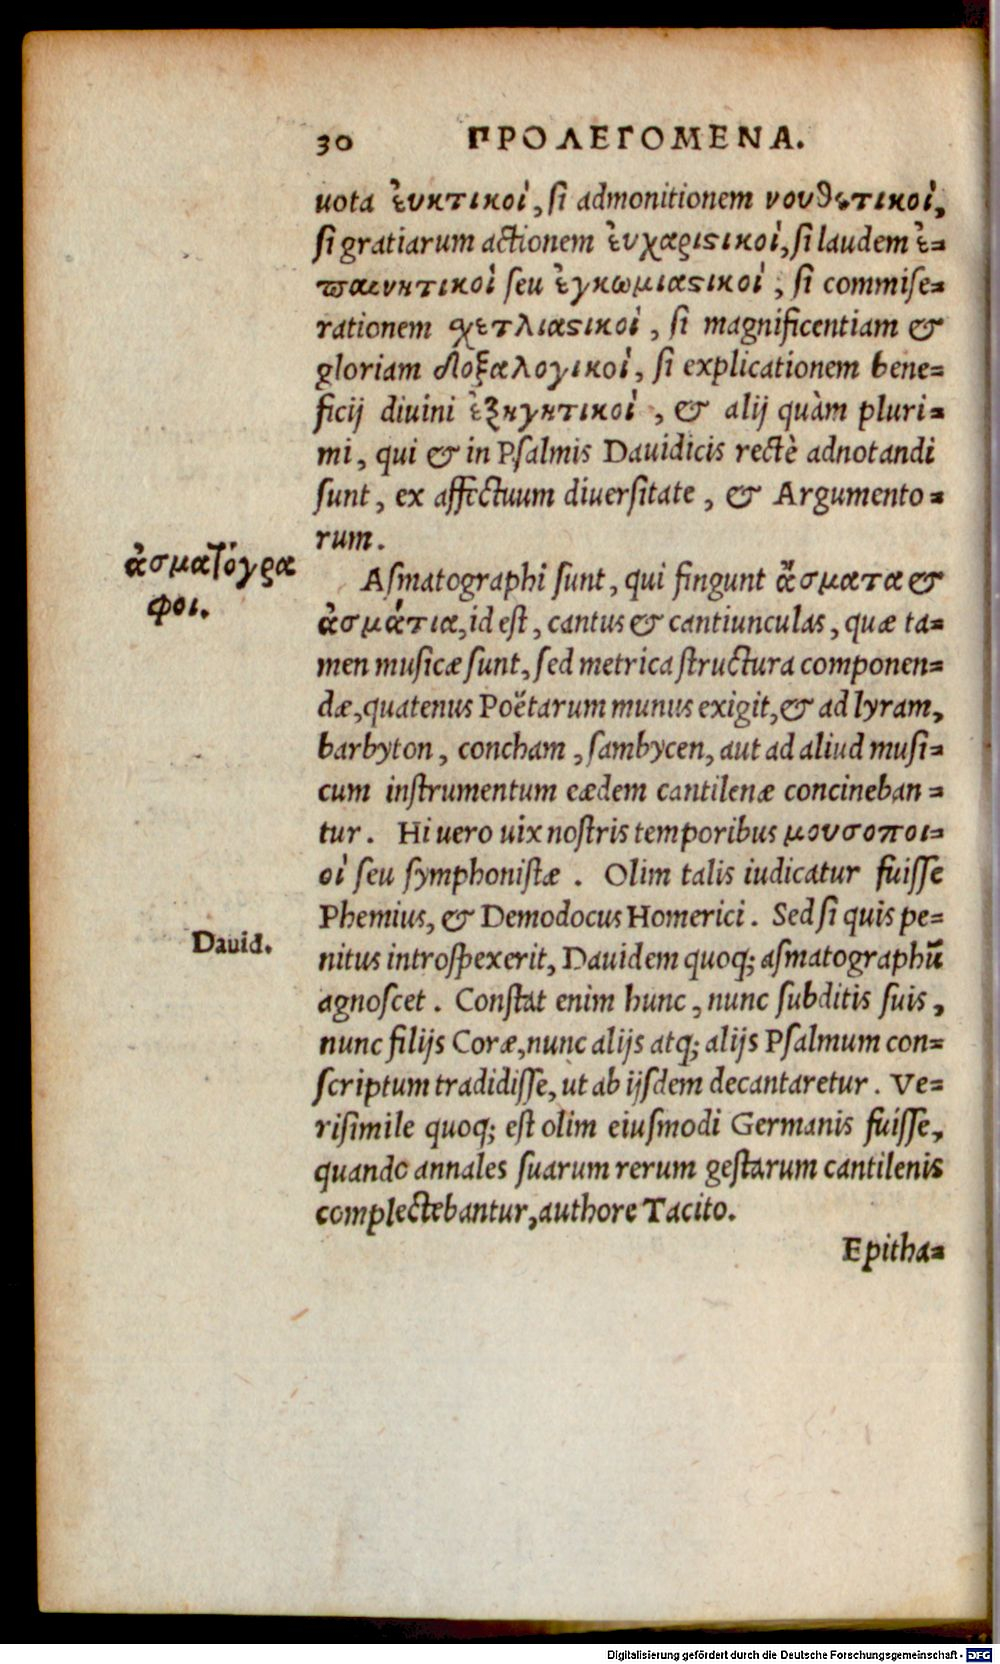 30 ΠΡΟΛΕΓΟΜΕΝΑ.
uota ἐυκτικοὶ, ſi admonitionem νουθετικοὶ,
ſi gratiarum actionem ἐυχαριϛικοὶ, ſi laudem ἐ-
παινητικοὶ ſeu ἐγκωμιαϛικοὶ, ſi commiſe-
rationem σχετλιαϛικοὶ, ſi magnificentiam &
gloriam δοξαλογικοὶ, ſi explicationem bene-
ficij diuini ἐξηγητικοὶ, & alij quàm pluri-
mi, qui & in Pſalmis Dauidicis rectè adnotandi
ſunt, ex affectuum diuerſitate, & Argumento-
rum.
ἀσματόγρα
φοι.
Aſmatographi ſunt, qui fingunt ἄσματα &
ἀσμάτια, id eſt, cantus & cantiunculas, quæ ta-
men muſicæ ſunt, ſed metrica ſtructura componen-
dæ, quatenus Poëtarum munus exigit, & ad lyram,
barbyton, concham, ſambycen, aut ad aliud muſi-
cum inſtrumentum eædem cantilenæ concineban-
tur. Hi uero uix noſtris temporibus μουσοποι-
οὶ ſeu ſymphoniſtæ. Olim talis iudicatur fuiſſe
Phemius, & Demodocus Homerici. Sed ſi quis pe-
Dauid.
nitus introſpexerit, Dauidem quoq; aſmatographū
agnoſcet. Conſtat enim hunc, nunc ſubditis ſuis,
nunc filijs Coræ, nunc alijs atq; alijs Pſalmum con-
ſcriptum tradidiſſe, ut ab ijſdem decantaretur. Ve-
riſimile quoq; eſt olim eiuſmodi Germanis fuiſſe,
quando annales ſuarum rerum geſtarum cantilenis
complectebantur, authore Tacito.
Epitha-
Digitalisierung gefördert durch die Deutsche Forschungsgemeinschaft - DFG